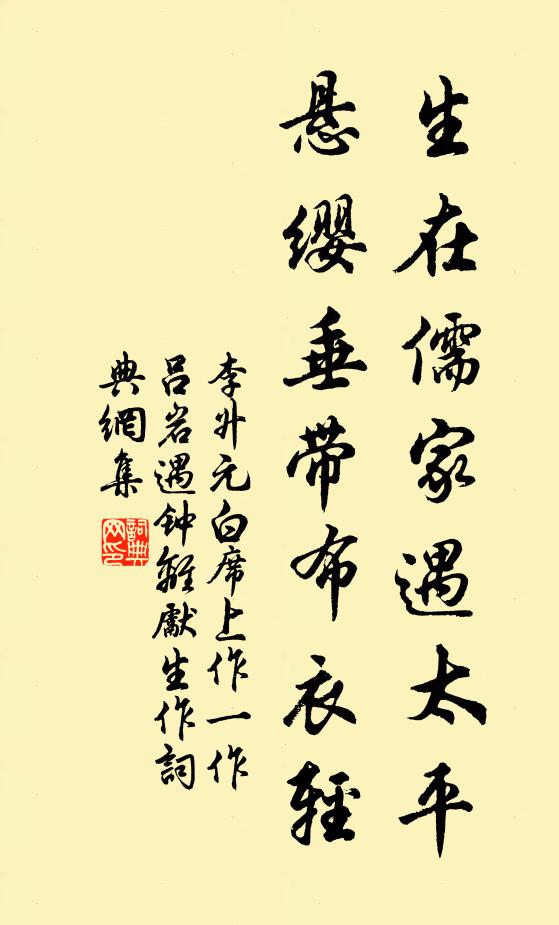 生在儒家遇太平
悬缨垂带布衣轻
李升元白席上作一作
吕岩遇钟离献生作词
典網集
詞典網印